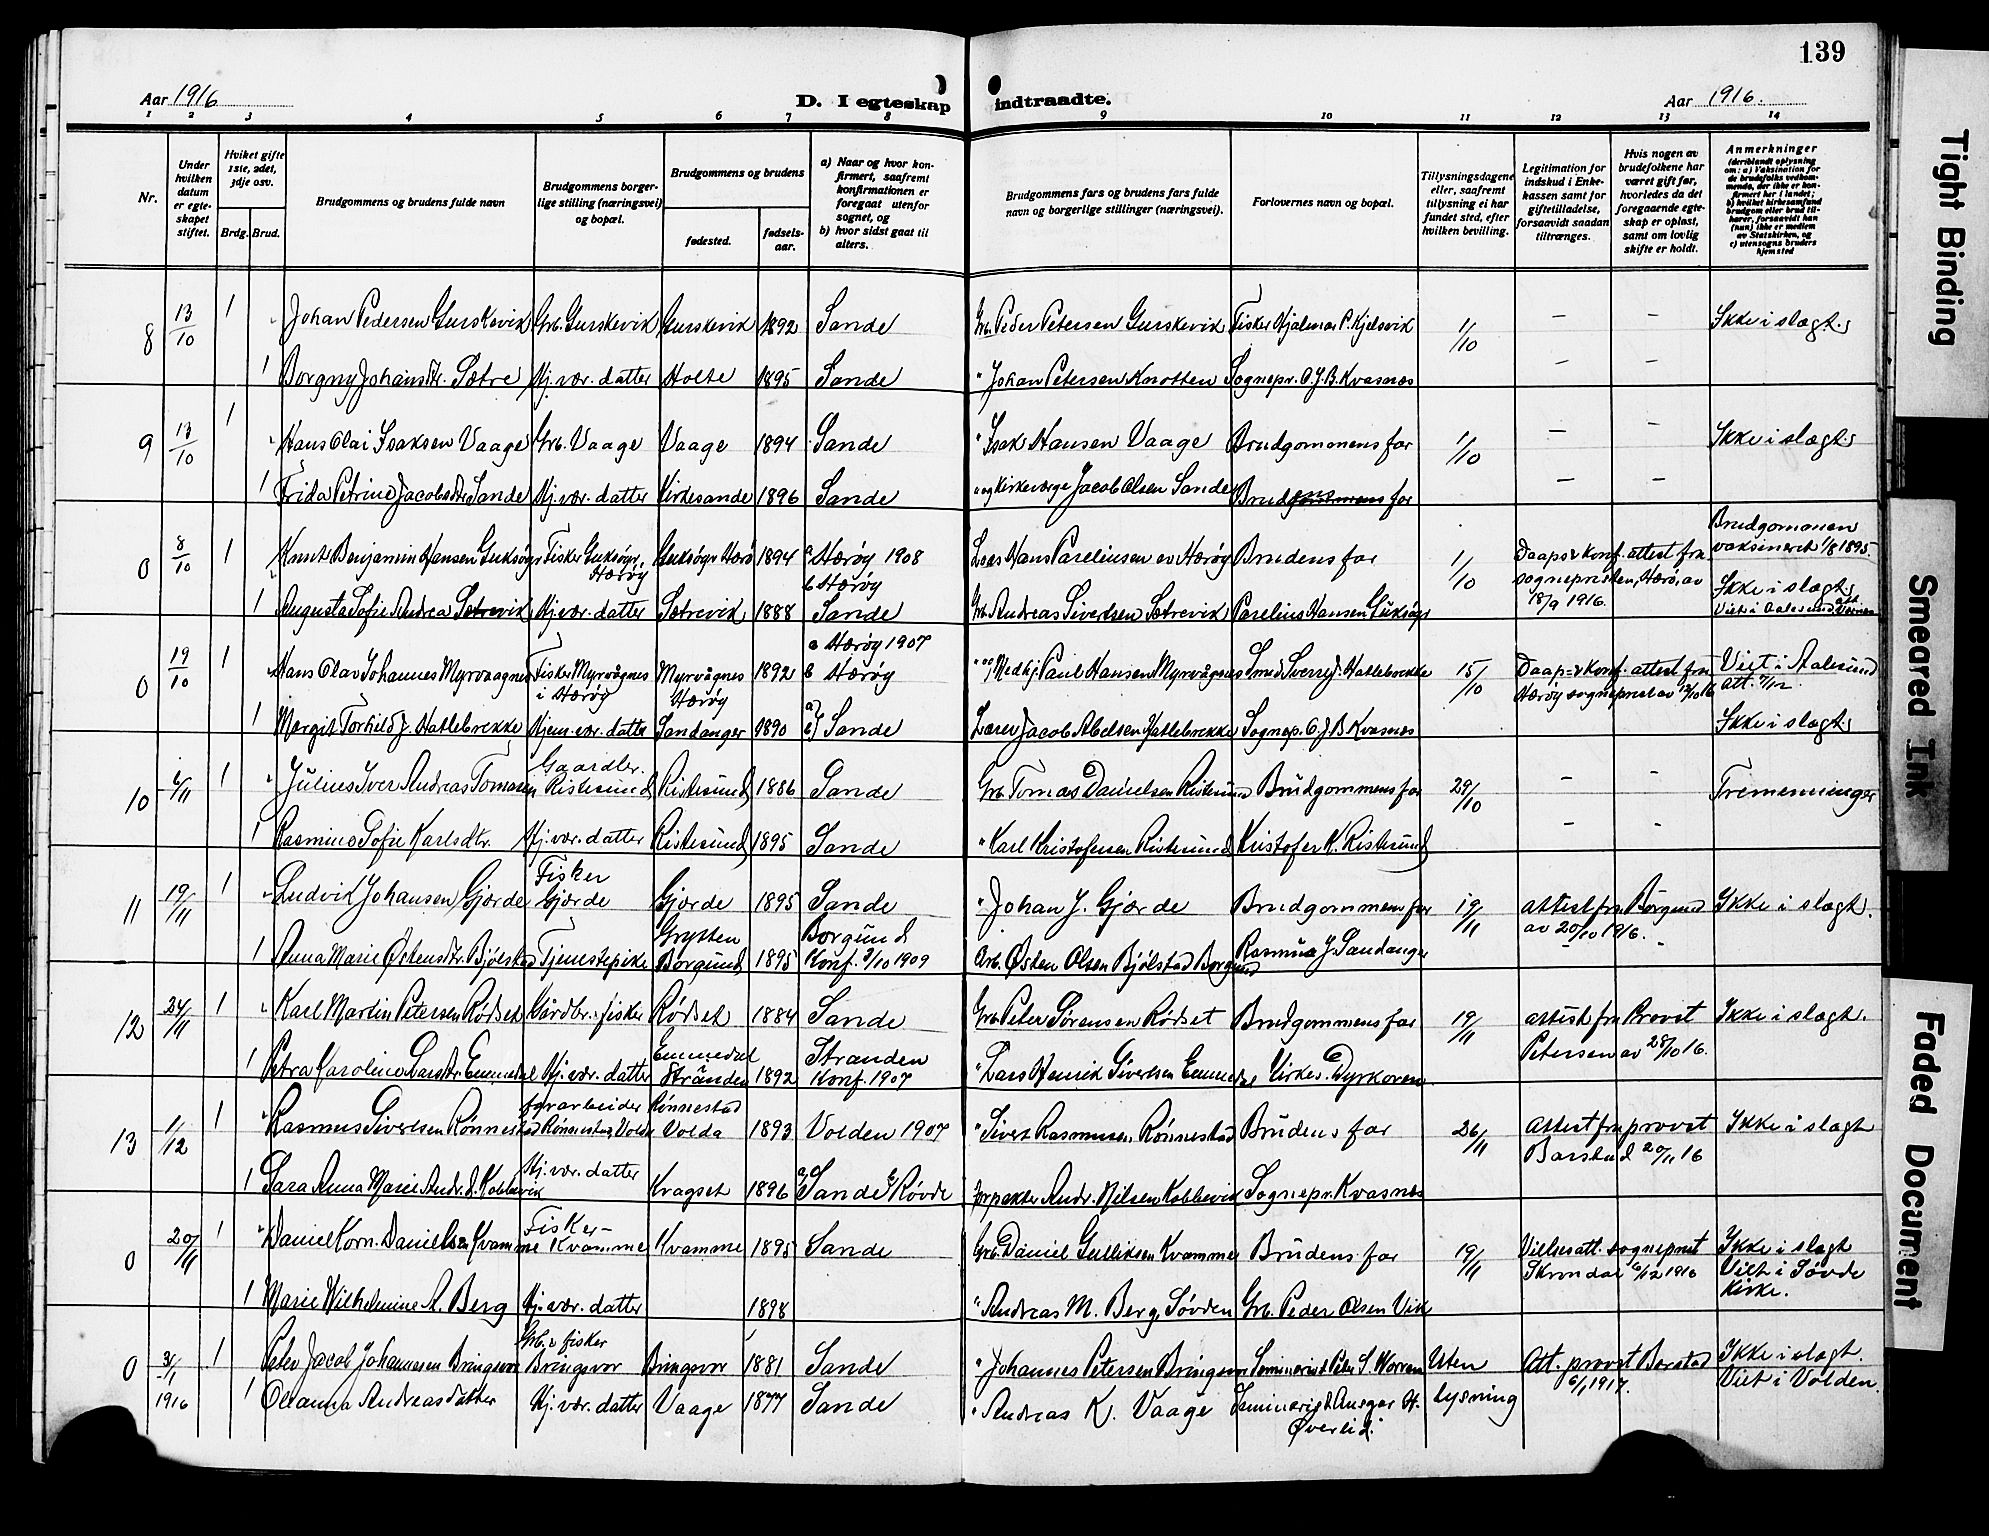 139
Aar 1916
D. I egteskap indtraadte.
Aar 1916.
1 2 3 4 5 6 7 8 9 10 11 12 13 14
Nr.
Under hvilken datum er egteskapet stiftet.
Hviket gifte 1ste, 2det, 3dje osv.
Brdg. Brud.
Brudgommens og brudens fulde navn
Brudgommens borgerlige stilling (næringsvei) og bopæl.
Brudgommens og brudens
fødested.
fødselsaar.
a) Naar og hvor konfirmert, saafremt konfirmationen er foregaat utenfor sognet, og
b) hvor sidst gaat til alters.
Brudgommens fars og brudens fars fulde navn og borgerlige stillinger (næringsvei).
Forlovernes navn og bopæl.
Tillysningsdagene eller, saafremt tillysning ei har fundet sted, efter hvilken bevilling.
Legitimation for indskud i Enkekassen samt for giftetilladelse, forsaavidt saadan tiltrænges.
Hvis nogen av brudefolkene har været gift før, hvorledes da det foregaaende egteskap er opløst, samt om lovlig skifte er holdt.
Anmerkninger
(deriblandt oplysning om: a) Vaksination for de brudefolks vedkommende, der ikke er konfirmert her i landet; b) hvilket kirkesamfund brudgom eller brud tilhører, forsaavidt han (hun) ikke er medlem av Statskirken, og c) utensogns bruders hjemsted
8 13/10 1 Johan Pedersen Gurskevik Grb. Gurskevik Gurskevik 1892 Sande Grb. Peder Petersen Gurskevik Fisker Hjalmar P. Kjelsvik 1/10 – – Ikke i slægt.
1 Borgny Johansdtr. Sætre Hj. vær. datter Holte 1895 Sande " Johan Petersen Knotten Sognepr. O.J.B. Kvasnes – –
9 13/10 1 Hans Olai Isaksen Vaage Grb. Vaage Vaage 1894 Sande " Isak Hansen Vaage Brudgommens far 1/10 – – Ikke i slægt.
1 Frida Petrine Jacobsdtr Sande Hj. vær. datter Kirkesande 1896 Sande " og Kirkeværge Jacob Olsen Sande far – –
0 8/10 1 Knut Benjamin Hansen Fisker Herøy 1894 a Herøy 1908 b Herøy Hans Pareliusen av Herøy Brudens far 1/10 Daaps & konf. attest fra sognepresten, Herø, av 18/9 1916. Brudgommen vaksineret 1/8 1895.
1 Augusta Sofie Andrea Sætrevik Hj. vær. datter Sætrevik 1888 Sande Grb. Andreas Sivertsen Sætrevik Parelius Hansen Ikke i slægt
0 19/10 1 Hans Olav Johannes Myrvaagnes Fisker Myrvågnes i Herøy Myrvågnes Herøy 1892 a Herøy 1907 b Herøy Paul Hansen Myrvågnes Smed Hattebrekke 15/10 Daap- & konf. attest fra Herøy sogneprest av Viet i Aalesund att. 7/12.
1 Margit Torhild J. Hattebrekke Hjem. vær. datter Sandanger 1890 a) b) Sande Lærer Jacob Abelsen Hattebrekke Sognep. O.J.B. Kvasnes Ikke i slægt
10 6/11 1 Julius Iver Andreas Tomasen Gaardbr. Ristesund Ristesund 1886 Sande Grb. Tomas Danielsen Ristesund Brudgommens far 29/10 – – Tremenninger
1 Rasmine Sofie Karlsdtr. Hj. vær. datter Ristesund 1895 Sande " Karl Kristofersen Ristesund Kristofer K. Ristesund – –
11 19/11 1 Ludvik Johansen Gjerde Fisker Gjerde Gjerde 1895 Sande " Johan J. Gjerde Brudgommens far 19/11 attest fra Borgund av 20/10 1916. Ikke i slægt.
1 Anna Marie Østensdtr. Bjølstad Tjenestepike Grytten Borgund 1895 Borgund Konf. 3/10 1909 Grb. Østen Olsen Bjølstad Borgund Rasmus J. Sandanger
12 24/11 1 Karl Martin Petersen Rødset Gårdbr. & fisker Rødset 1884 Sande Grb. Peter Sørensen Rødset Brudgommens far 19/11 attest fra Provst Petersen av 28/10 16. Ikke i slægt.
1 Petra Karoline Larsdtr. Emmedal Hj. vær. datter Emmedal Stranden 1892 Stranden Konf. 1907 " Lars Henrik Sivertsen Dyrkoren
13 1/12 1 Rasmus Sivertsen Rønnestad Rønnestad, Volda Rønnestad Volda 1893 Volden 1907 " Sivert Rasmusen Rønnestad Brudens far 26/11 Attest fra provst Barstad 20/11 16 Ikke i slægt
1 Sara Anna Marie Andr. d. Koblevik Hj. vær. datter Kragset 1896 a) Sande b) Røvde Forpakter Andr. Nilsen Koblevik Sognepr. Kvasnes
0 20/11 1 Daniel Korn. Danielsen Kvamme Fisker – Kvamme Kvamme 1895 Sande Grb. Daniel Gulliksen Kvamme Brudens far 19/11 Vielsesatt. sogneprest Skrondal 6/12 1916 Ikke i slægt Viet i Søvde Kirke.
1 Marie Wilhelmine A. Berg Hj. vær. datter 1898 " Andreas M. Berg, Søvden Grb. Peder Olsen Vik
0 3/1 1916 1 Peter Jacob Johannesen Bringsvor Grb. & fisker Bringsvor Bringsvor 1881 Sande " Johannes Petersen Bringsvor Seminarist Peter S. Uten lysning Att. provst Barstad 6/1 1917. Ikke i slægt. Viet i Volden.
1 Oleanna Andreasdatter Hj. vær. datter Vaage 1877 Sande " Andreas K. Vaage Seminarist Ansgar H. Øverlid.
Tight Binding
Smeared Ink
Faded Document